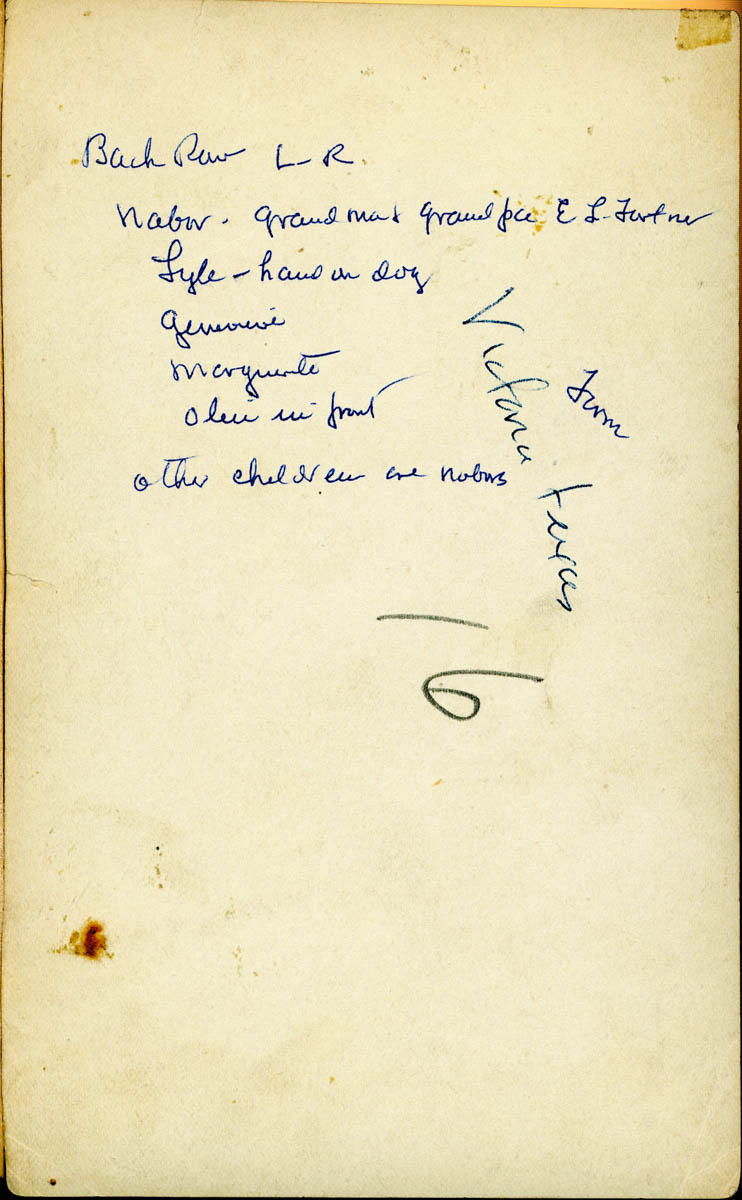 Back Row L-R.
Nabor. Grandma & Grandpa E L. Fortner
Lyle - hand on dog
Genevieve
Marguerite
Olen in front
other children are nabors
Victoria Texas
Farm
16